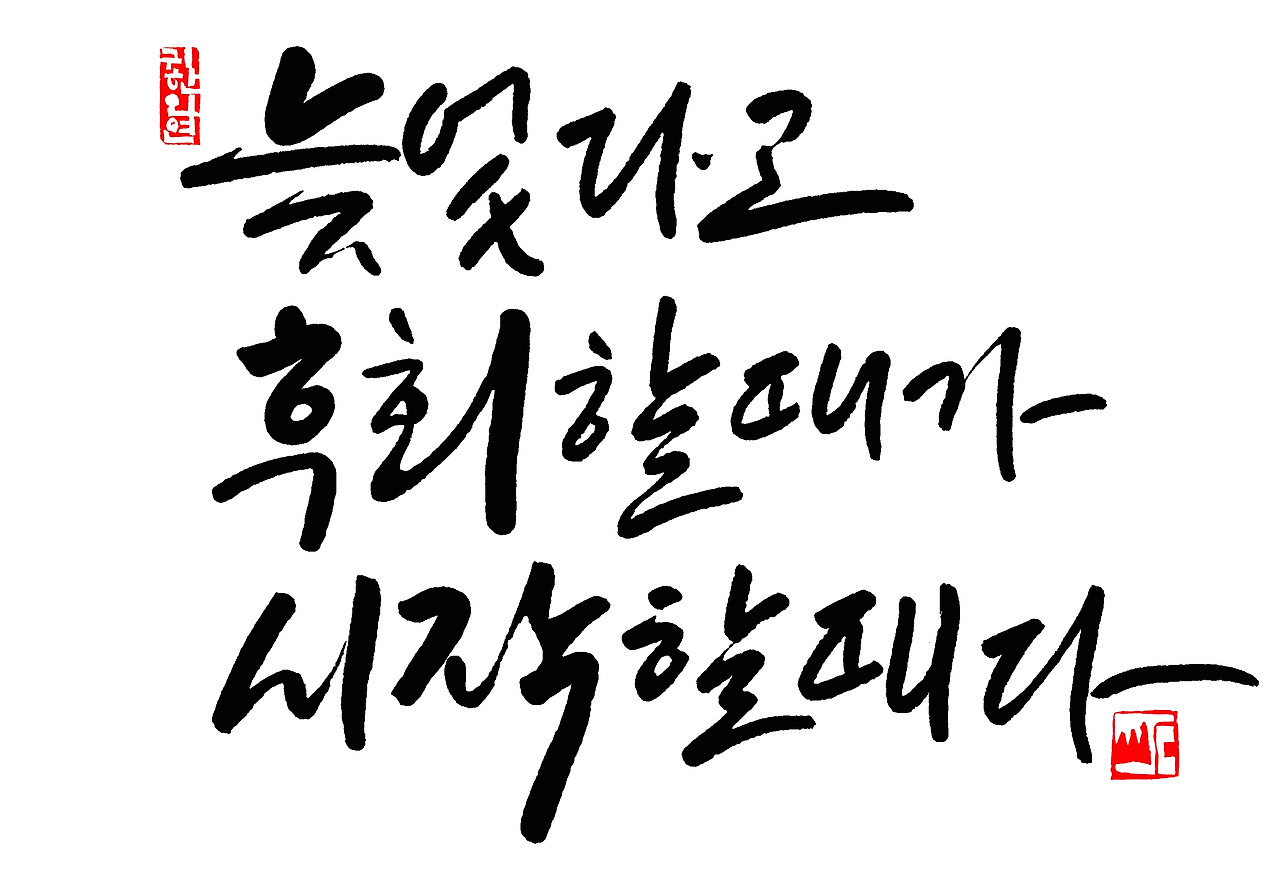 늦었다고
후회할때가
시작할때다